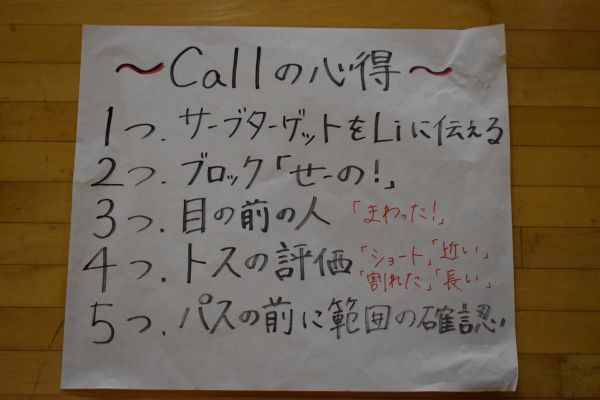 ～Callの心得～
1つ.サーブターゲットをLiに伝える
2つ.ブロック「せーの!」
3つ.目の前の人「まわった!」
4つ.トスの評価「ショート」「近い」
「割れた」「長い」
5つ.パスの前に範囲の確認